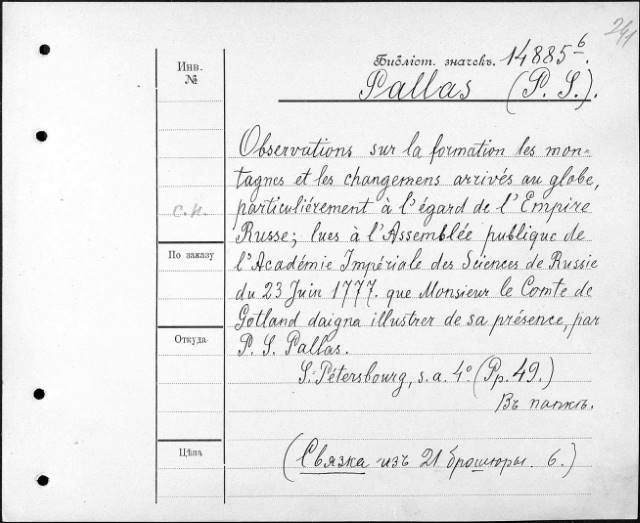 241
Инв.
№
Библіот. значокъ. 14885 6.
Pallas (P. S.).
Observations sur la formation des mon-
tagnes et les changemens arrivés au globe,
particulièrement à l'égard de l'Empire
Russe; lues à l'Assemblée publique de
l'Académie Impériale des Sciences de Russie
du 23 Juin 1777. que Monsieur le Comte de
Gotland daigna illustrer de sa présence, par
P. S. Pallas.
S.-Pétersbourg, s. a. 4º (Pp. 49.)
Въ папкѣ.
(Связка изъ 21 брошюры. 6.)
с.п.
По заказу
Откуда
Цѣна